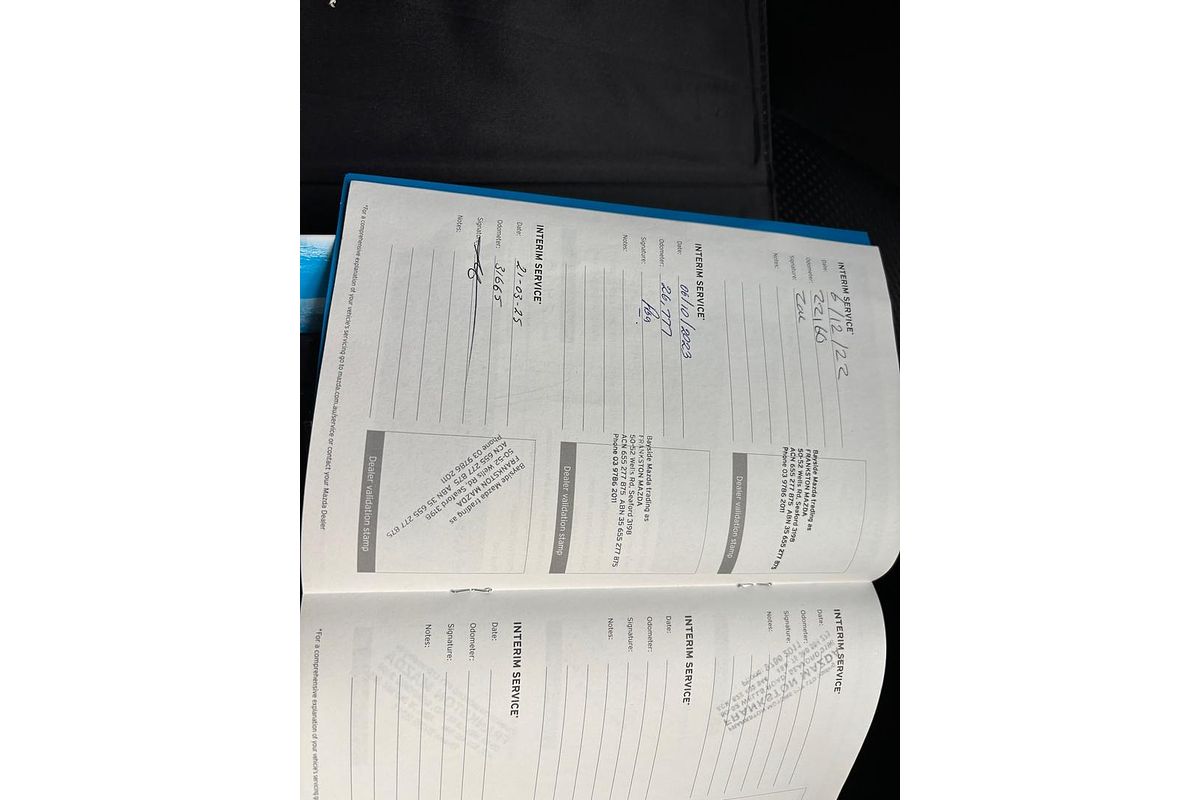 INTERIM SERVICE*
Date: 6/12/22
Odometer: 22160
Signature: Zac
Notes:
Bayside Mazda trading as
FRANKSTON MAZDA
50-52 Wells Rd, Seaford 3198
ACN 655 277 875 ABN 35 655 277 875
Phone 03 9786 2011
Dealer validation stamp
INTERIM SERVICE*
Date: 06/10/2023
Odometer: 26,777
Signature:
Notes:
Bayside Mazda trading as
FRANKSTON MAZDA
50-52 Wells Rd, Seaford 3198
ACN 655 277 875 ABN 35 655 277 875
Phone 03 9786 2011
Dealer validation stamp
INTERIM SERVICE*
Date: 21-03-25
Odometer: 31665
Signature:
Notes:
Bayside Mazda trading as
FRANKSTON MAZDA
50-52 Wells Rd, Seaford 3198
ACN 655 277 875 ABN 35 655 277 875
Phone 03 9786 2011
Dealer validation stamp
*For a comprehensive explanation of your vehicle's servicing go to mazda.com.au/service or contact your Mazda Dealer
INTERIM SERVICE*
Date:
Odometer:
Signature:
Notes:
FRANKSTON MAZDA
INTERIM SERVICE*
Date:
Odometer:
Signature:
Notes:
INTERIM SERVICE*
Date:
Odometer:
Signature:
Notes:
*For a comprehensive explanation of your vehicle's servicing